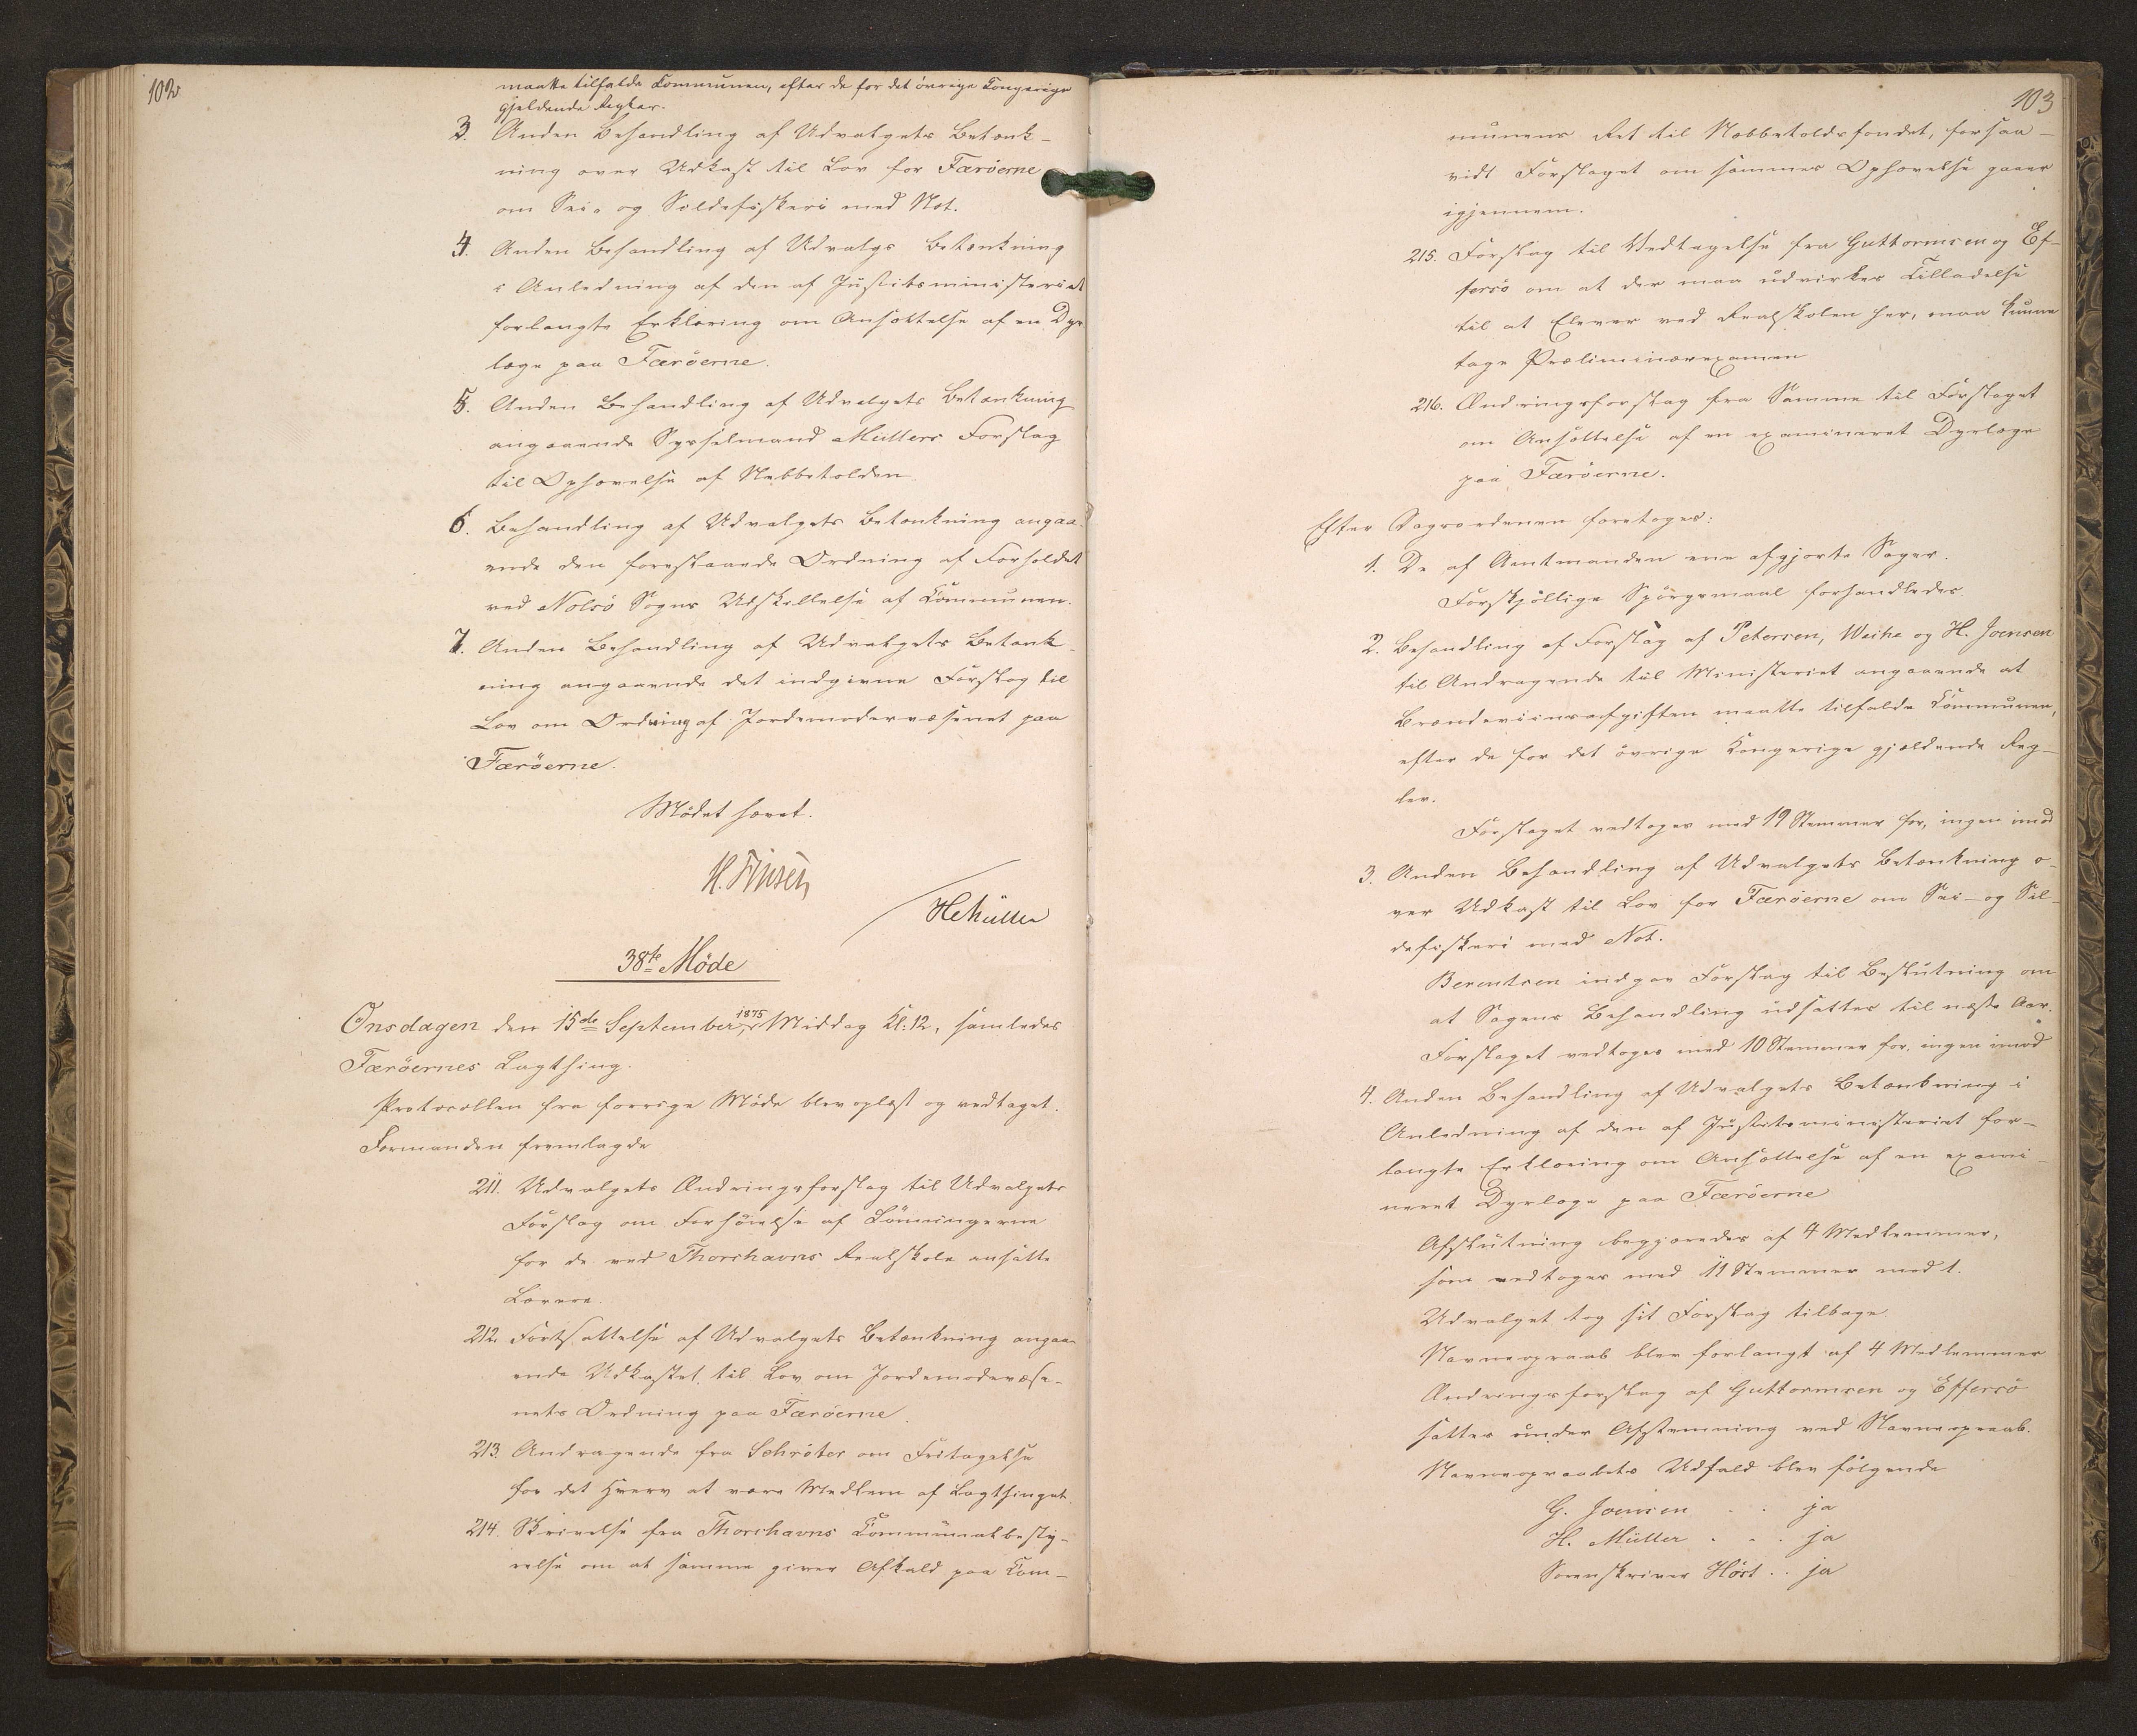 102
maatte tilfalde Kommunen, efter de for det øvrige Kongerige
gjeldende Regler.
3. Anden Behandling af Udvalgets Betænk-
ning over Udkast til Lov for Færöerne
om Sei- og Sildefiskeri med Not.
4. Anden Behandling af Udvalgs Betænkning
i Anledning af den af Justitsministeriet
forlangte Erklæring om Ansættelse af en Dyr
læge paa Færöerne.
5. Anden Behandling af Udvalgets Betænkning
angaaende Sysselmand Müllers Forslag
til Ophævelse af Nebbetolden
6. Behandling af Udvalgets Betænkning angaa-
ende den forestaaende Ordning af Forholdet
ved Nolsö Sogns Udskillelse af Kommunen.
7. Anden Behandling af Udvalgets Betænk-
ning angaaende det indgivne Forslag til
Lov om Ordning af Jordemodervæsenet paa
Færöerne.
Mödet hævet.
H. Finsen
HCMüller
38te Möde
Onsdagen den 15de September 1875, Middag Kl. 12, samledes
Færöernes Lagthing.
Protocollen fra forrige Möde blev oplæst og vedtaget.
Formanden fremlagde
211. Udvalgets Ændringsforslag til Udvalgets
Forslag om Forhöielse af Lönningerne
for de ved Thorshavns Realskole ansatte
Lærere.
212. Fortsættelse af Udvalgets Betænkning angaa-
ende Udkastet til Lov om Jordemodevæse-
nets Ordning paa Færöerne.
213. Andragende fra Schröter om Fritagelse
for det Hverv at være Medlem af Lagthinget.
214. Skrivelse fra Thorshavns Kommunalbesty-
relse om at samme giver Afkald paa Kom-
103
munens Ret til Nebbetoldsfondet, forsaa-
vidt Forslaget om sammes Ophævelse gaaer
igjennem.
215. Forslag til Vedtagelse fra Guttormsen og Ef-
fersö om at der maa udvirkes Tilladelse
til at Elever ved Realskolen her, maa kunne
tage Præliminærexamen
216. Ændringsforslag fra Samme til Forslaget
om Ansættelse af en examineret Dyrlæge
paa Færöerne.
Efter Dagsordenen foretoges:
1. De af Amtmanden ene afgjorte Sager.
Forskjellige Spörgsmaal forhandledes
2. Behandling af Forslag af Petersen, Weihe og H. Joensen
til Andragende til Ministeriet angaaende at
Brændeviinsafgiften maatte tilfalde Kommunen,
efter de for det övrige Kongerige gjældende Reg-
ler.
Forslaget vedtoges med 19 Stemmer for, ingen imod
3. Anden Behandling af Udvalgets Betænkning o-
ver Udkast til Lov for Færöerne om Sei- og Sil-
defiskeri med Not.
Berentsen indgav Forslag til Beslutning om
at Sagens Behandling udsættes til næste Aar.
Forslaget vedtoges med 10 Stemmer for, ingen imod
4. Anden Behandling af Udvalgets Betænkning i
Anledning af den af Justitsministeriet for-
langte Erklæring om Ansættelse af en exami-
neret Dyrlæge paa Færöerne
Afslutning begjæredes af 4 Medlemmer,
som vedtoges med 11 Stemmer mod 1.
Udvalget tog sit Forslag tilbage
Navneopraab blev forlangt af 4 Medlemmer
Ændringsforslag af Guttormsen og Effersö
sattes under Afstemning ved Navneopraab.
Navneopraabets Udfald blev fölgende
G. Joensen . . ja
H. Müller . . . ja
Sorenskriver Höst . . ja